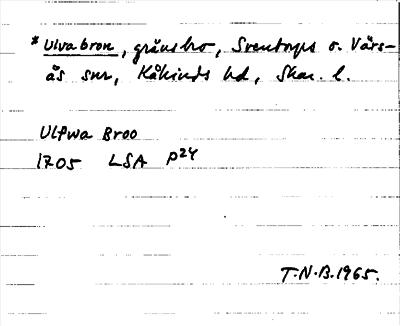 * Ulvabron, gränsbro, Sventorps o. Värs-
ås snr, Kåkinds hd, Skar. l.
Ulfwa Broo
1705 LSA P24
T.N.B. 1965.